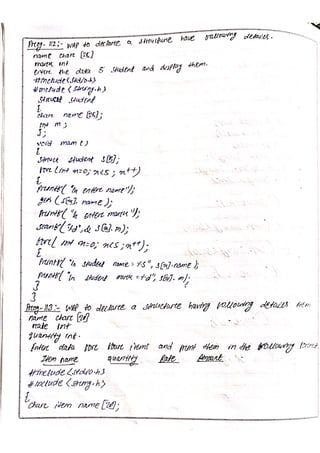 Prog- 112:- WAP to declare a structure have following details.
name char [36]
marks int
enter the data 5 student and display them.
#include<stdio.h>
#include <string.h>
struct student
{
char name [36];
int m;
};
void main()
{
struct student s[5];
for (int n=0; n<5; n++)
{
printf("\n enter name");
gets (s[n]. name);
printf("\n enter marks");
scanf("%d", & s[n]. m);
for( int n=0; n<5; n++);
{
printf("\n student name = %s", s[n].name);
printf("\n student mark = %d", s[n]. m);
}
}
Prog- 113:- WAP to declare a structure having following details item
name char [20]
rate int
quantity int.
Enter data for four items and print them in the following format
Item name quantity Rate Amount
#include <stdio.h>
#include <string.h>
{
char item name [20];